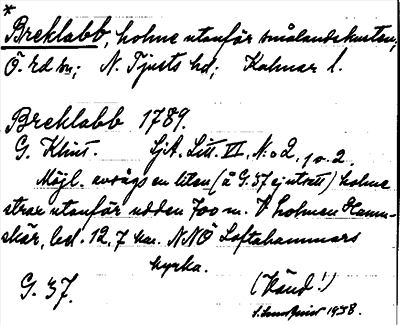 *
Breklabb, holme utanför smålandskusten;
Ö. Ed sn; N. Tjusts hd; Kalmar l.
Breklabb 1789.
G. Klint. SjA. Litt. VI, N:o 2, 1 o. 2.
Möjl. avses en liten (å G. 37 ej utsatt) holme
strax utanför udden 700 m. V holmen Hamn-
skär, bel. 12,7 km. NNÖ Loftahammars
kyrka.
G. 37. (Känd!)
1938.